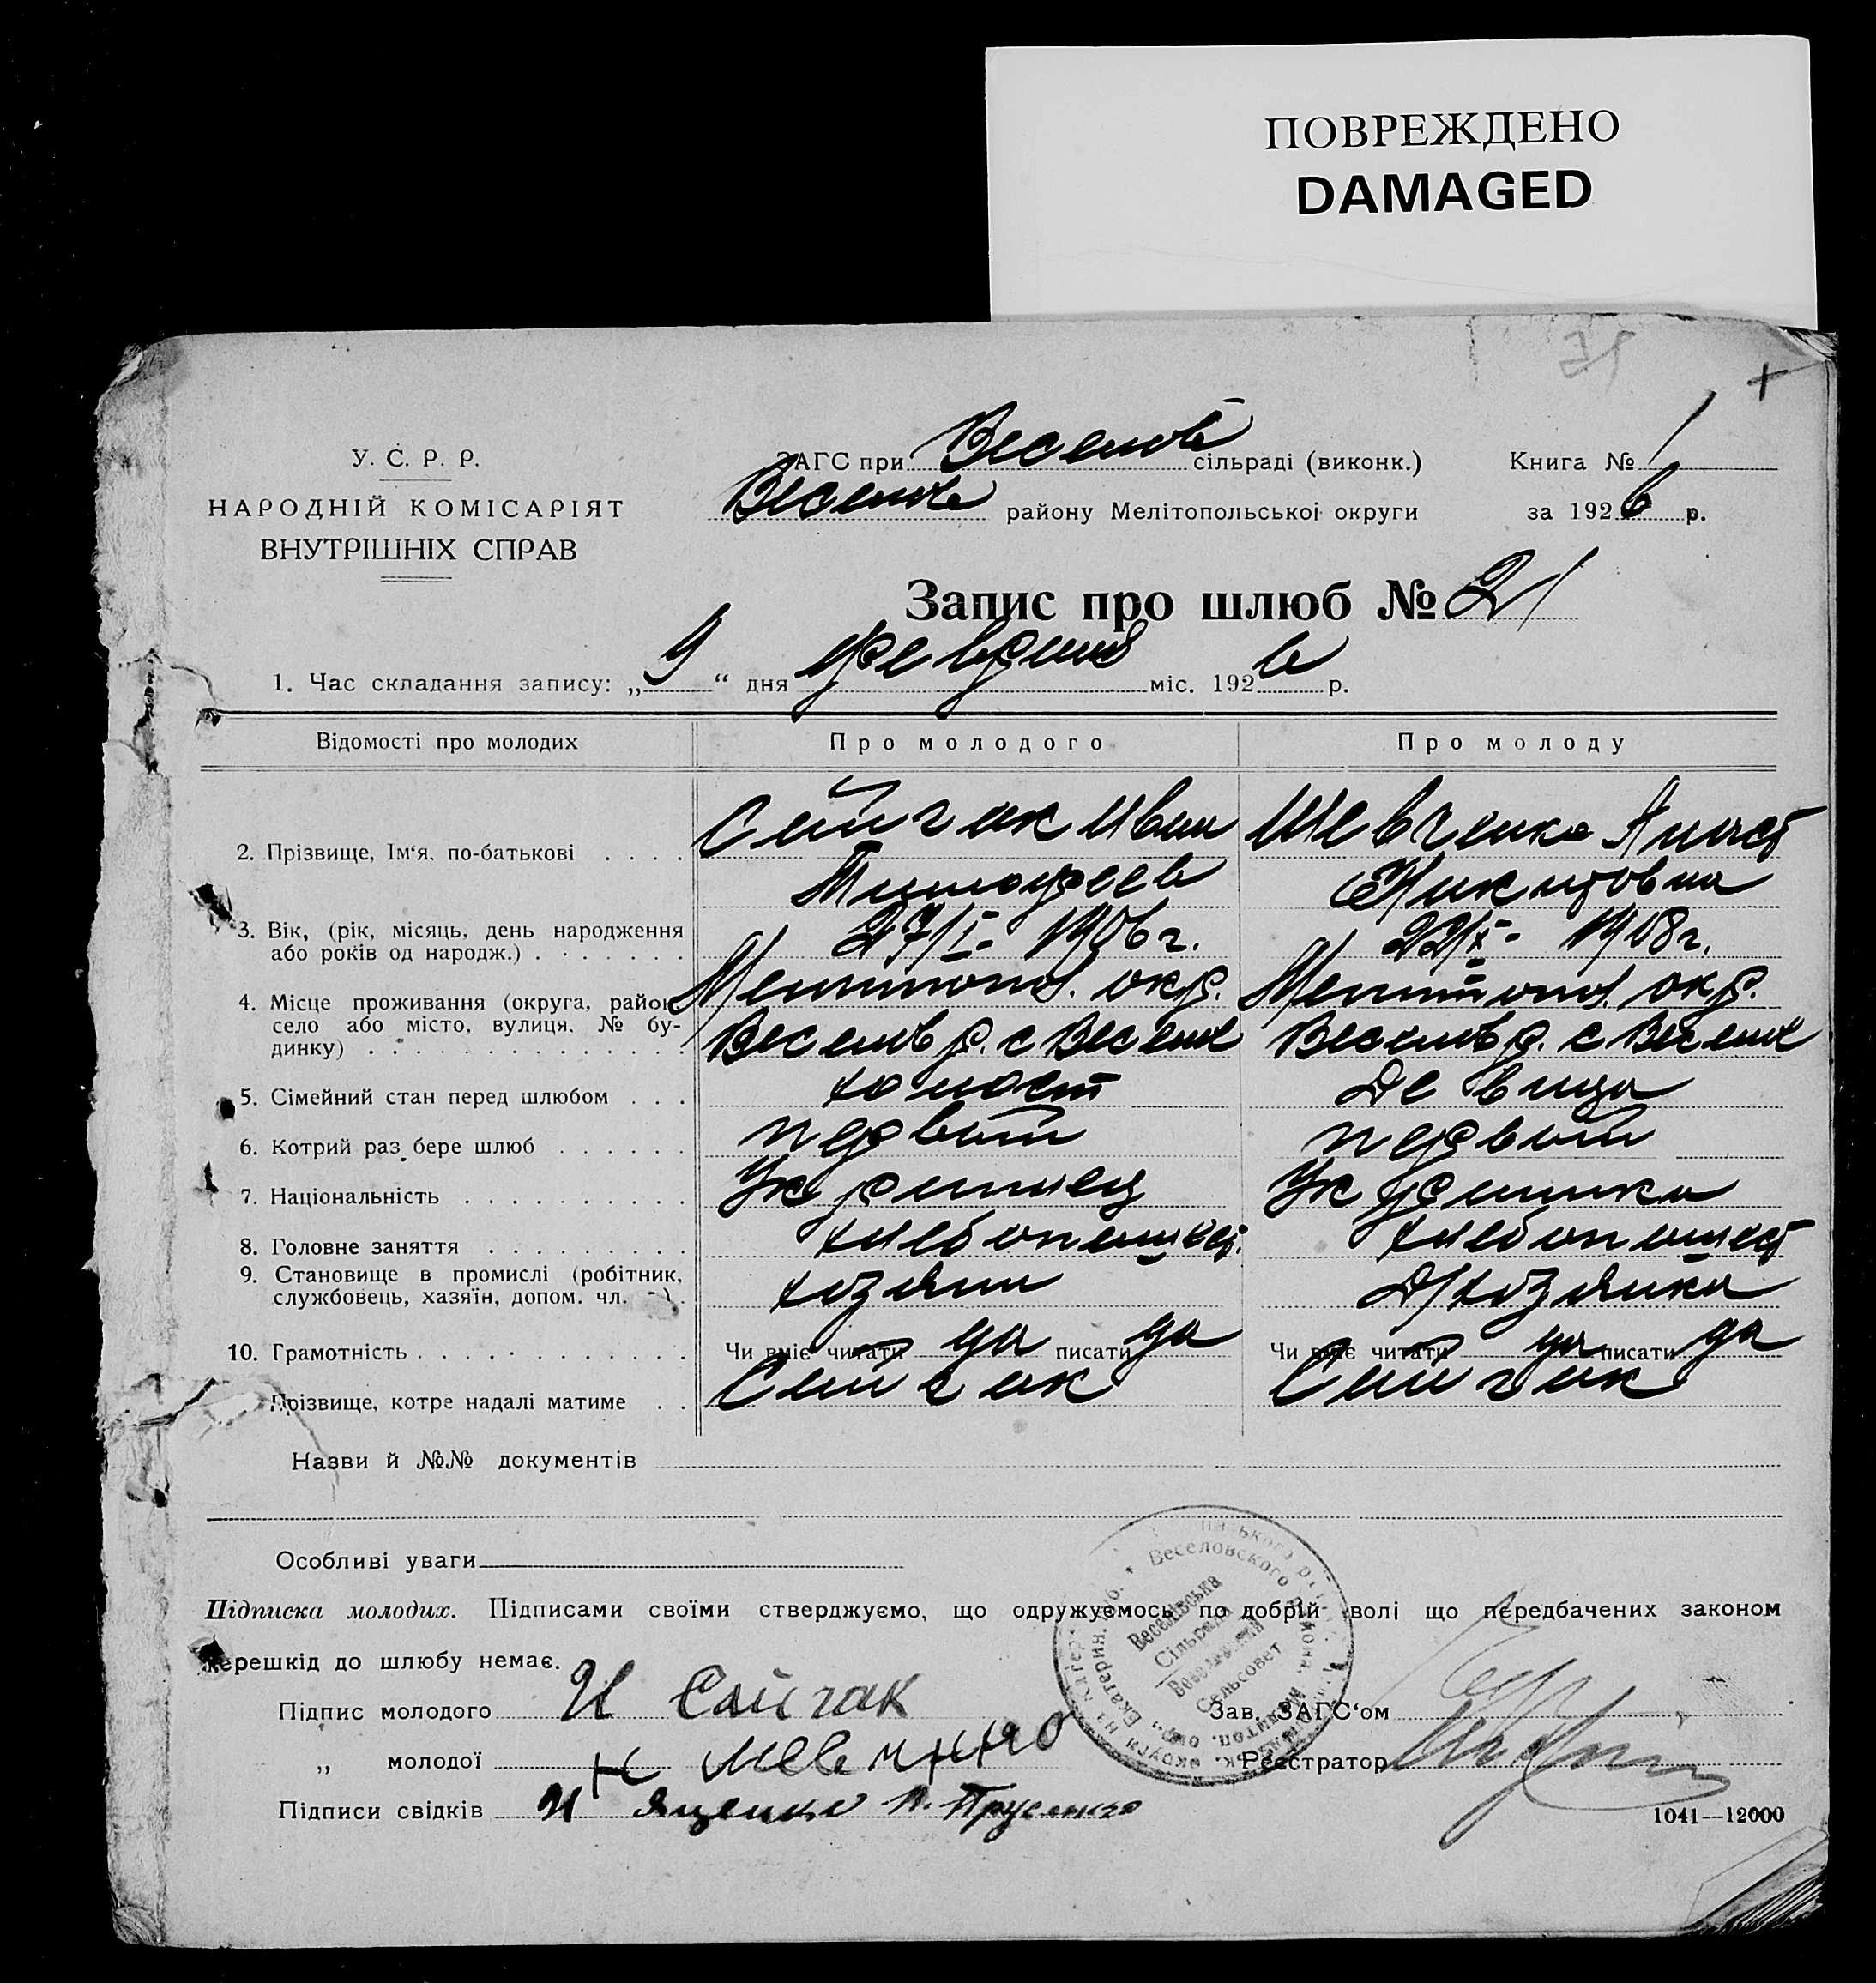 ПОВРЕЖДЕНО
DAMAGED
У. С. Р. Р.
НАРОДНІЙ КОМІСАРІЯТ
ВНУТРІШНІХ СПРАВ
ЗАГС при Веселов сільраді (виконк.)
Веселов району Мелітопольської округи
Книга № 1
за 1926 р.
Запис про шлюб № 21
1. Час складання запису: „9“ дня февраля міс. 1926 р.
Відомості про молодих Про молодого Про молоду
2. Прізвище, Ім'я. по-батькові . . . . Сайгак Иван Шевченко Анаст
Тимофеев Никитовна
3. Вік, (рік, місяць, день народження 27/I- 1906 г. 22/X- 1908 г.
або років од народж.) . . . . . . .
4. Місце проживання (округа, район, Мелитопол. окр. Мелитопол. окр.
село або місто, вулиця, № бу- Веселов р. с Веселое Веселов р. с Веселое
динку) . . . . . . . . . . . . . .
5. Сімейний стан перед шлюбом . . . холост девица
6. Котрий раз бере шлюб . . . . . . первый первый
7. Національність . . . . . . . . . . Украинец Украинка
8. Головне заняття . . . . . . . . . хлебопашест. хлебопашест
9. Становище в промислі (робітник, хозяин Д/хозяйка
службовець, хазяїн, допом. чл.
10. Грамотність . . . . . . . . . . . . Чи вміє читати да писати да Чи вміє читати да писати да
Прізвище, котре надалі матиме . . Сайгак Сайгак
Назви й №№ документів
Особливі уваги
Підписка молодих. Підписами своїми стверджуємо, що одружуємось по добрій волі що передбачених законом
перешкід до шлюбу немає.
Підпис молодого И Сайгак
Зав. ЗАГС'ом
„ молодої
Реєстратор
Підписи свідків И Яценко П. Прусенко
1041—12000
Веселовского
Веселівська
Сільрада
Сельсовет